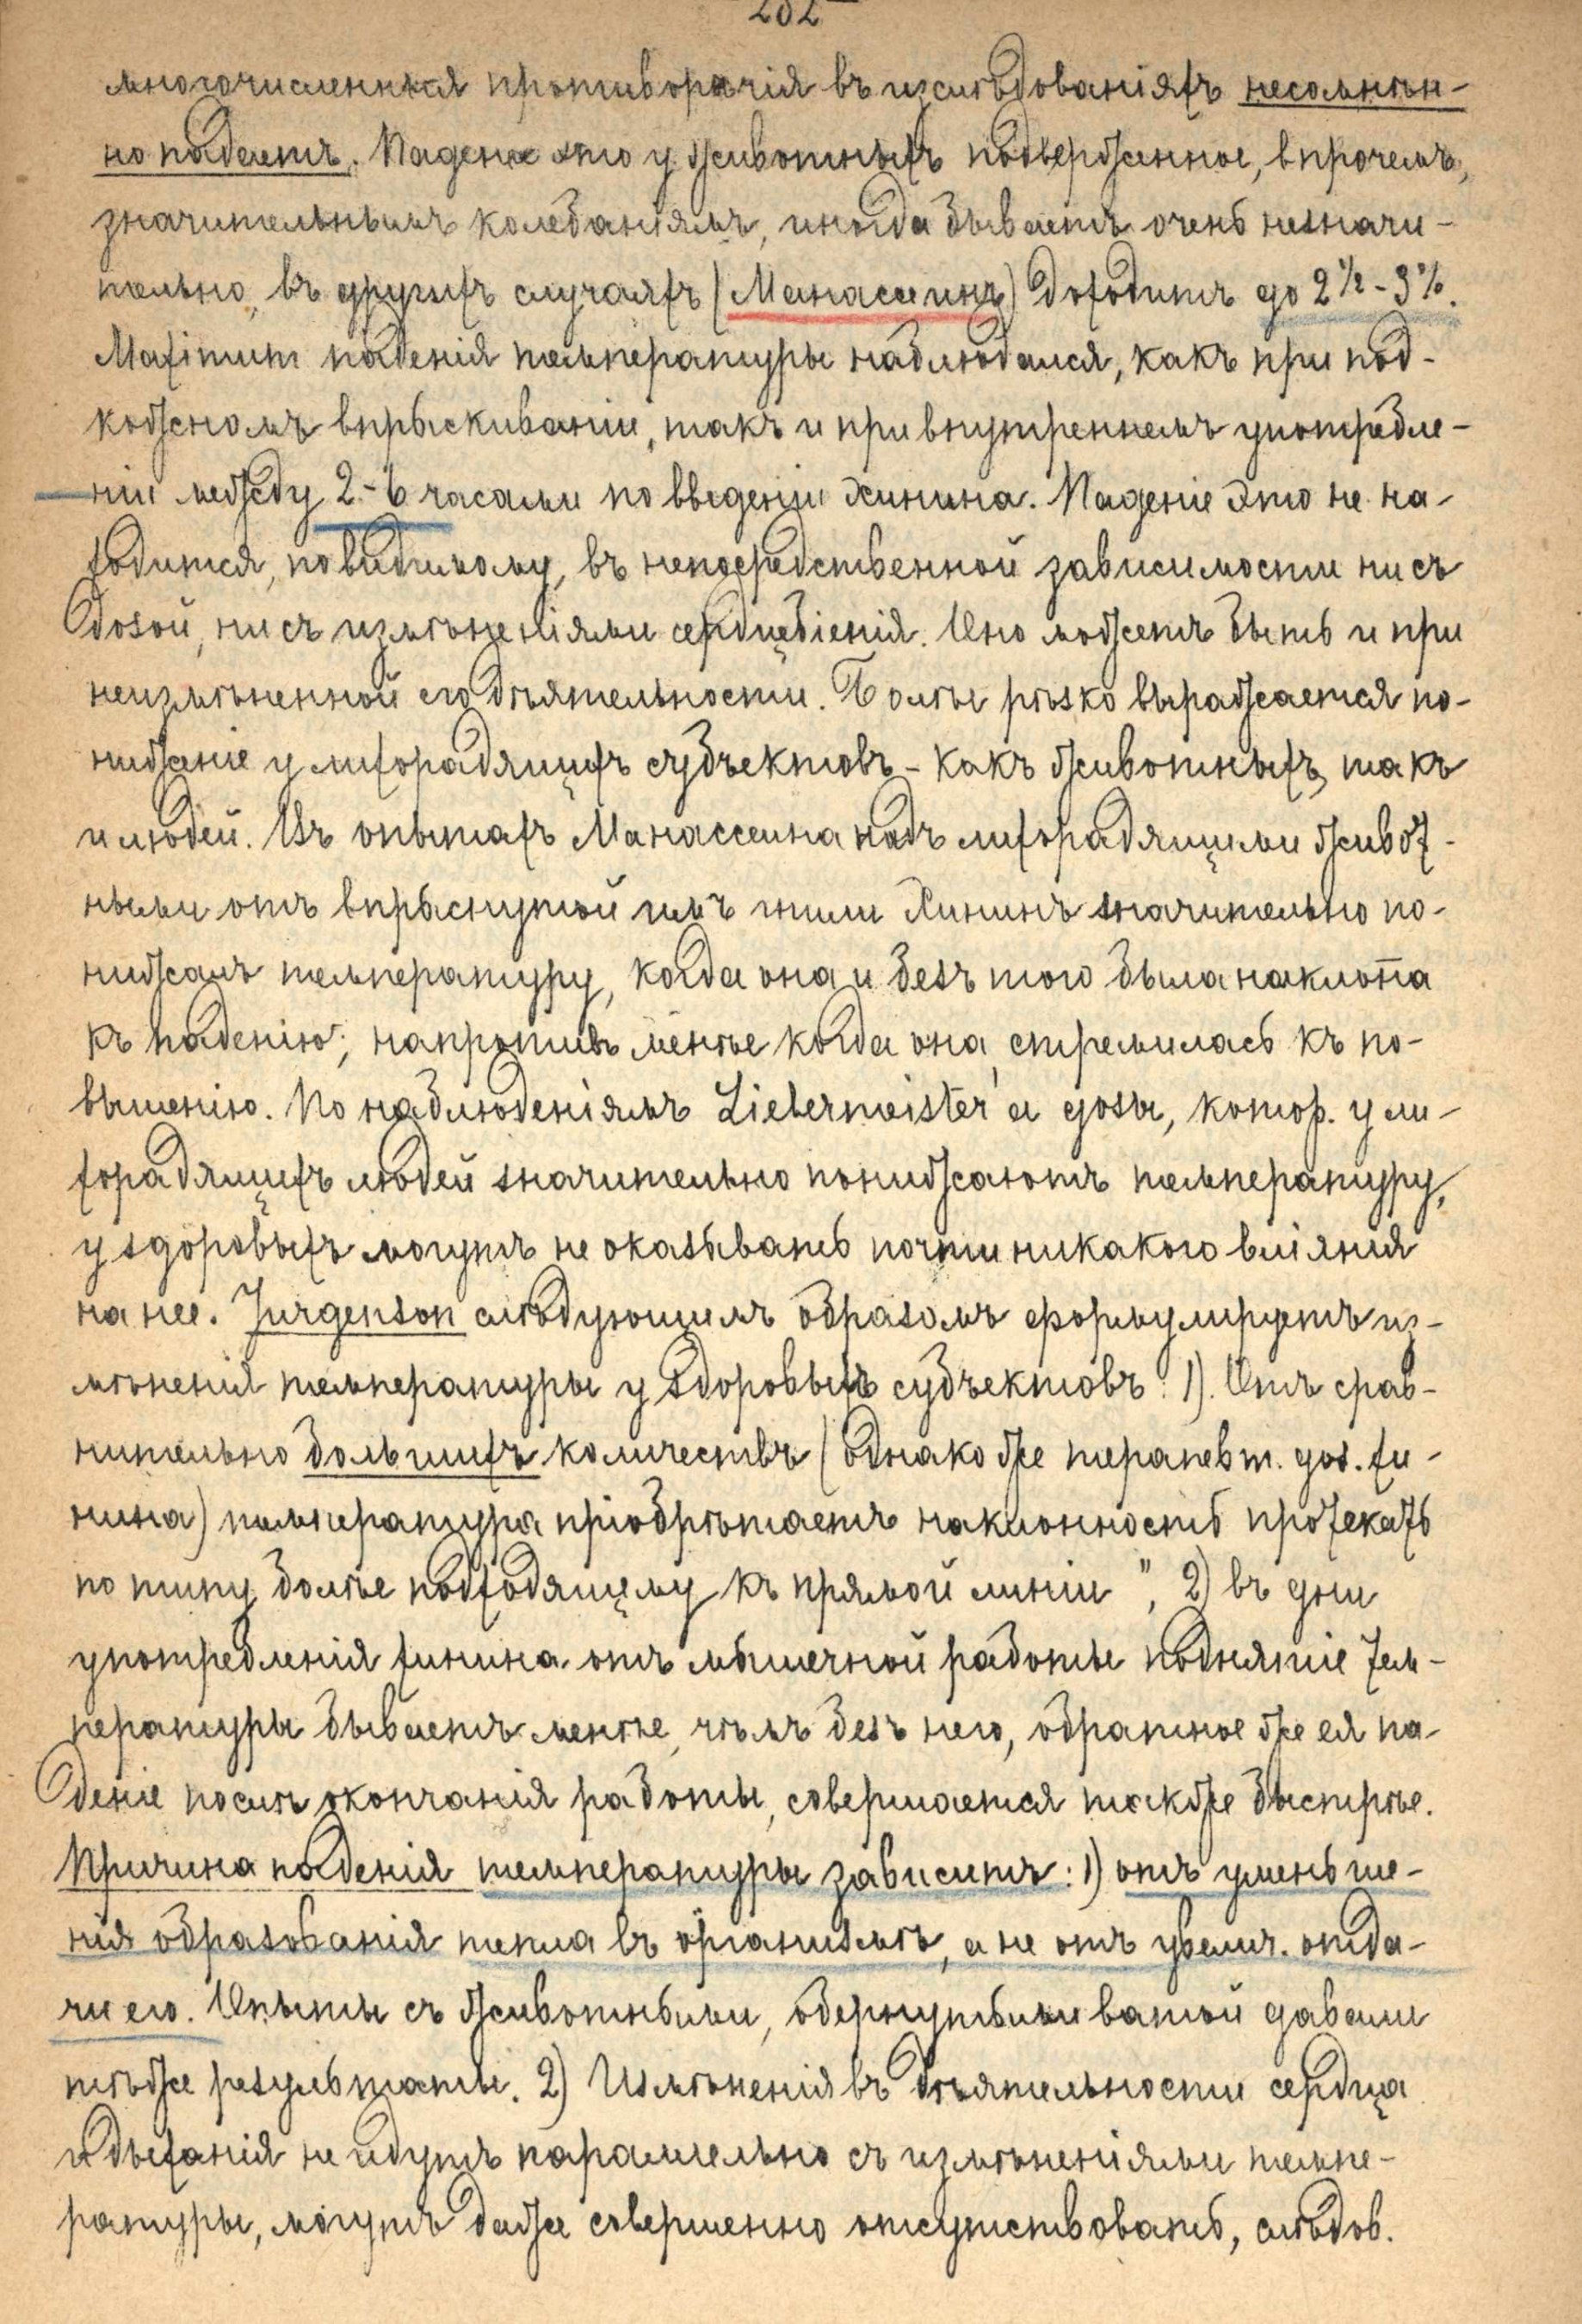 232
многочисленныя противорѣчія въ изслѣдованіяхъ несомнѣн-
но падаетъ. Паденіе это у животныхъ подверженное, впрочемъ,
значительнымъ колебаніямъ, иногда бываетъ очень незначи-
тельно, въ другихъ случаяхъ (Манассеинъ) доходитъ до 2½-3%.
Maximum паденія температуры наблюдался, какъ при под-
кожномъ впрыскиваніи, такъ и при внутреннемъ употребле-
ніи между 2-6 часами по введеніи хинина. Паденіе это не на-
ходится, повидимому, въ непосредственной зависимости ни съ
дозой, ни съ измѣненіями сердцебіенія. Оно можетъ быть и при
неизмѣненной его дѣятельности. Болѣе рѣзко выражается по-
ниженіе у лихорадящихъ субъектовъ - какъ животныхъ, такъ
и людей. Въ опытахъ Манассеина надъ лихорадящими живот-
ными отъ впрыснутой имъ гнили Хининъ значительно по-
нижалъ температуру, когда она и безъ того была наклонна
къ паденію; напротивъ менѣе когда она стремилась къ по-
вышенію. По наблюденіямъ Liebermeister'а дозы, котор. у ли-
хорадящихъ людей значительно понижаютъ температуру,
у здоровыхъ могутъ не оказывать почти никакого вліянія
на нее. Jurgenson слѣдующимъ образомъ формулируетъ из-
мѣненія температуры у здоровыхъ субъектовъ: 1). Отъ срав-
нительно большихъ количествъ (однако же терапевт. доз. хи-
нина) температура пріобрѣтаетъ наклонность протекать
по типу, болѣе подходящему къ прямой линіи", 2) въ дни
употребленія хинина отъ мышечной работы поднятіе тем-
пературы бываетъ менѣе, чѣмъ безъ него, обратное же ея па-
деніе послѣ окончанія работы, совершается также быстрѣе.
Причина паденія температуры зависитъ: 1) отъ уменьше-
нія образованія тепла въ организмѣ, а не отъ увелич. отда-
чи его. Опыты съ животными, обернутыми ватой давали
тѣже результаты. 2) Измѣненія въ дѣятельности сердца
и дыханія не идутъ параллельно съ измѣненіями темпе-
ратуры, могутъ даже совершенно отсутствовать, слѣдов.